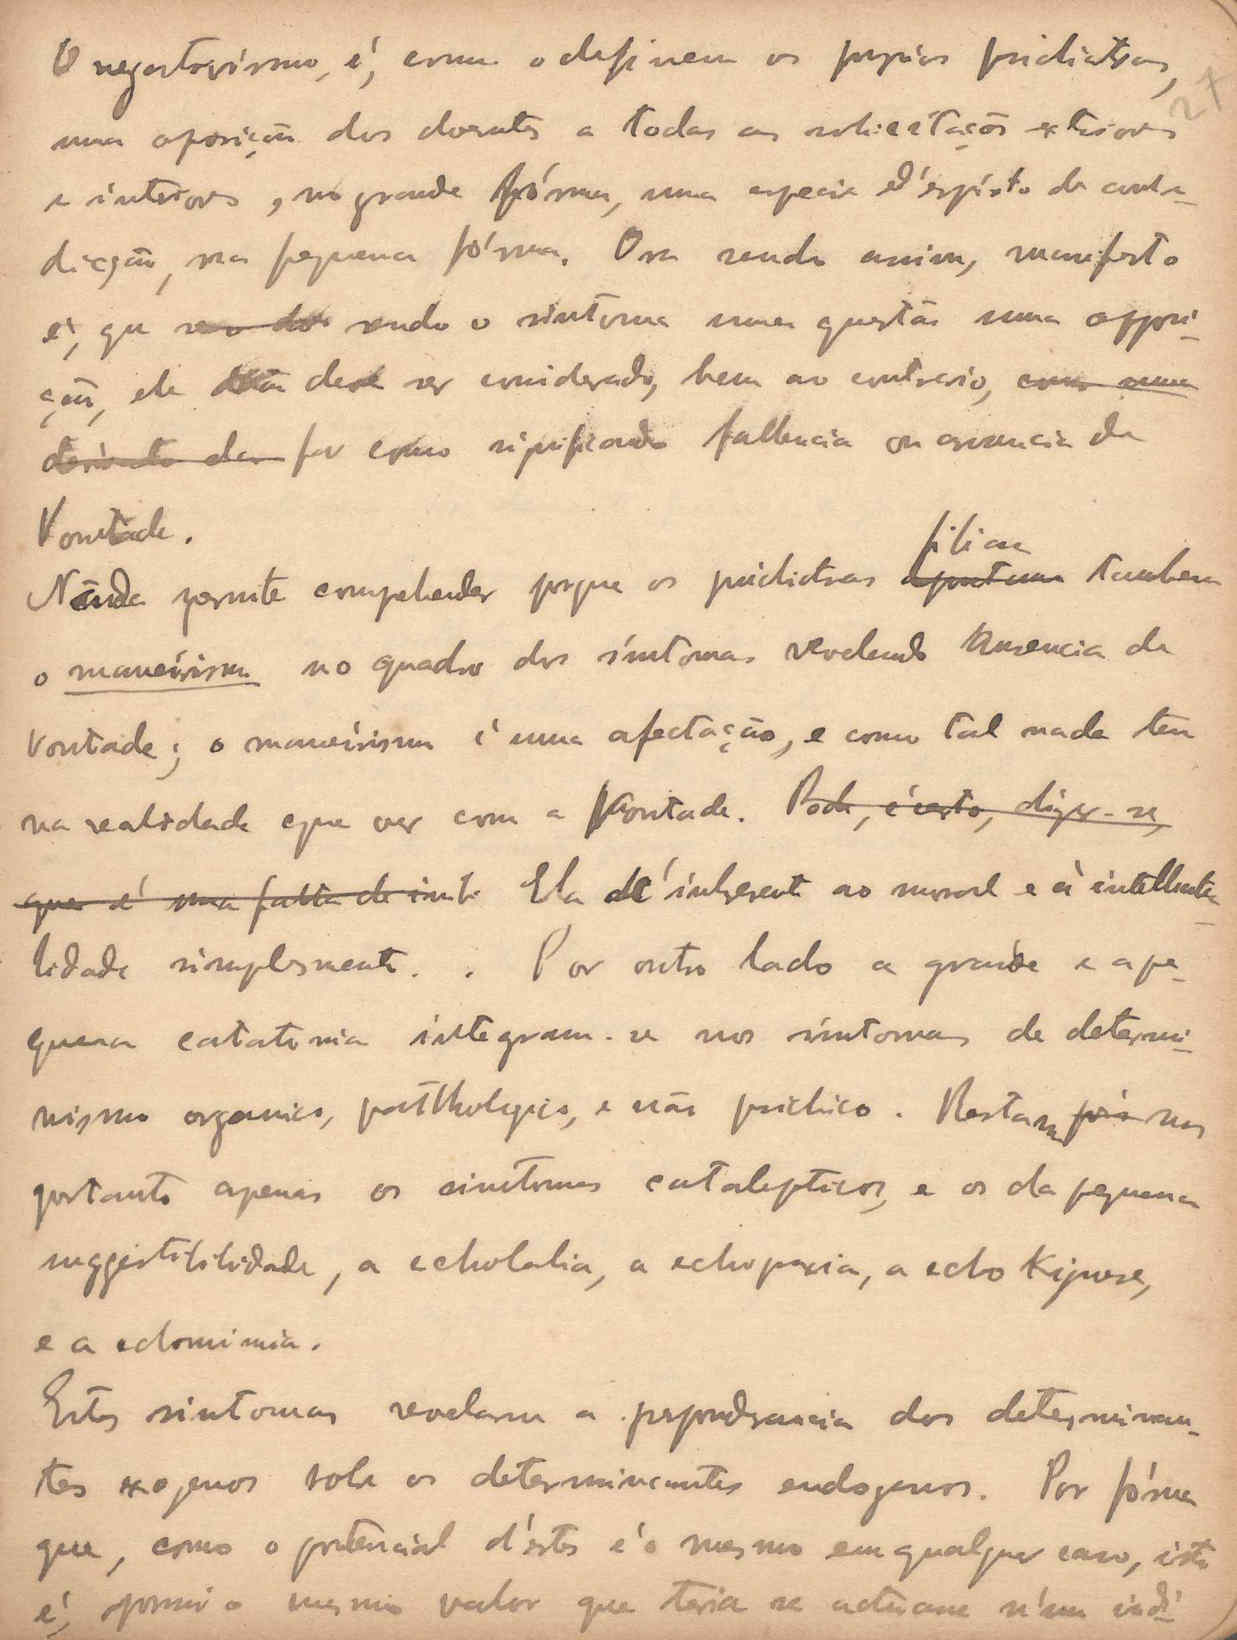 27
O negativismo, é, como o definem os proprios psichiatras,
uma oposição dos doentes a todas as solicitações exteriores
e interiores, na grande fórma, uma especie d'espirito de contra-
dicção, na pequena fórma. Ora sendo assim, manifesto
é, que sendo o sintoma numa questão uma opposi-
ção, ele não deve ser considerado, bem ao contrario, como uma
derivante da for como significando fallencia ou ausencia da
Vontade.
Nada permite comprehender porque os psichiatras filiam
apontam tambem
o maneirismo no quadro dos síntomas revelando Ausencia da
Vontade; o maneirismo é uma afectação, e como tal nada tem
na realidade que ver com a Vontade. Pode, é certo, dizer-se,
que é uma falta de inte Ela é inherente ao moral e á intellectua-
lidade simplesmente. . Por outro lado a grande e a pe-
quena catatonia integram-se nos síntomas de determi-
nismo organico, pathologico, e não psichico. Restam pois nos
portanto apenas os sintomas catalepticos, e os da pequena
suggestibilidade, a echolalia, a echopraxia, a echo Kinese,
e a echomimia.
Estes sintomas revelam a preponderancia dos determinan-
tes exogenos sobre os determinantes endogenos. Por fórma
que, como o potencial d'estes é o mesmo em qualquer caso, isto
é, possui o mesmo valor que teria se actuasse n'um indi-